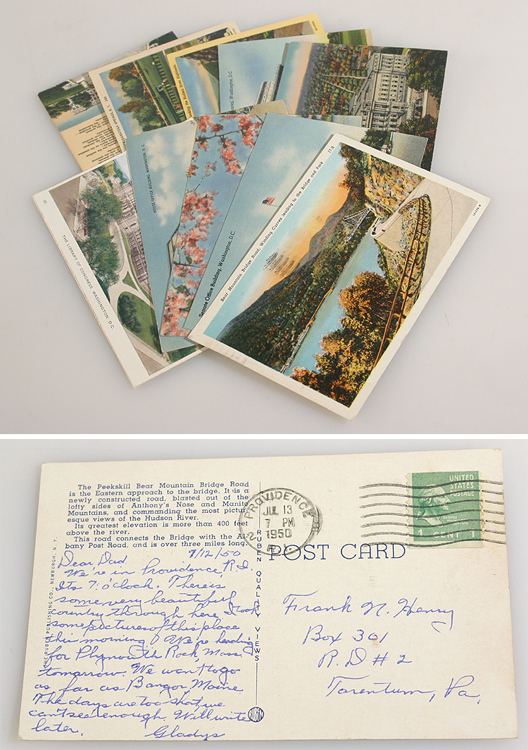 THE LIBRARY OF CONGRESS, WASHINGTON, D.C.
Senate Office Building, Washington, D.C.
Bear Mountain Bridge Road, Winding Curves leading to the Bridge and Park
The Peekskill Bear Mountain Bridge Road
is the Eastern approach to the bridge. It is a
newly constructed road, blasted out of the
lofty sides of Anthony's Nose and Manito
Mountains, and commanding the most pictur-
esque views of the Hudson River.
Its greatest elevation is more than 400 feet
above the river.
This road connects the Bridge with the Al-
bany Post Road, and is over three miles long.
7/12/50
Dear Dad,
We're in Providence, R.I.
Its 7 o'clock. There's
some very beautiful
country through here. Took
some pictures of this place
this morning. We're heading
for Plymouth Rock Mass
tomorrow. We want to go
as far as Bangor Maine
The days are too short, we
can't see enough. Will write
later. Gladys
QUALITY VIEWS
PROVIDENCE
JUL 13
7 PM
1950
R.I.
UNITED
STATES
POSTAGE
1 CENT
POST CARD
Frank N. Henry
Box 301
R.D # 2
Tarentum, Pa.